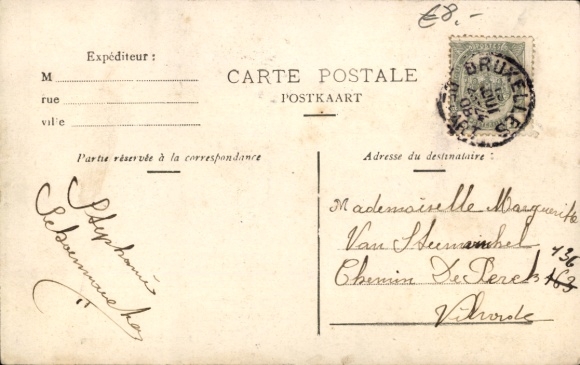 €8.-
Expéditeur :
M
rue
ville
CARTE POSTALE
POSTKAART
BRUXELLES
Partie réservée à la correspondance
Adresse du destinataire :
Stéphanie
Mademoiselle Marguerite
Van Steenwinkel
Chemin De Perck 163
136
Vilvorde